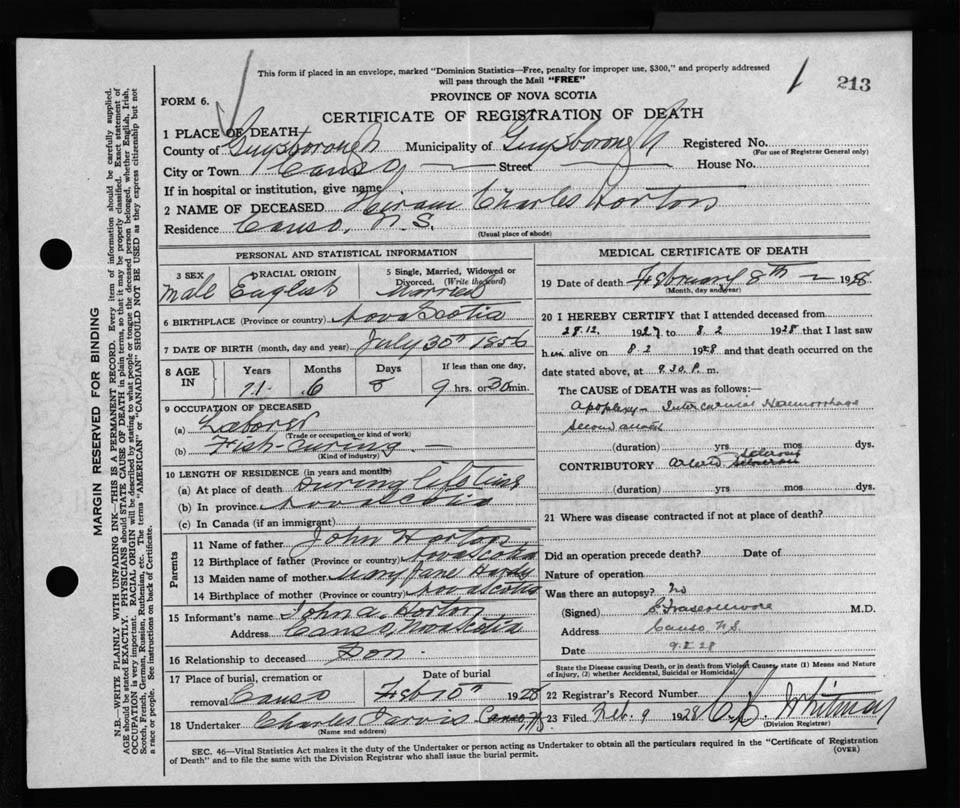 This form if placed in an envelope, marked "Dominion Statistics—Free, penalty for improper use, $300," and properly addressed
will pass through the Mail "FREE"
213
FORM 6.
PROVINCE OF NOVA SCOTIA
CERTIFICATE OF REGISTRATION OF DEATH
1 PLACE OF DEATH
County of Guysborough Municipality of Guysborough Registered No.
(For use of Registrar General only)
City or Town Canso — Street — House No.
If in hospital or institution, give name
2 NAME OF DECEASED Hiram Charles Horton
Residence Canso, N.S.
(Usual place of abode)
PERSONAL AND STATISTICAL INFORMATION
3 SEX
Male
4 RACIAL ORIGIN
English
5 Single, Married, Widowed or
Divorced. (Write the word)
Married
6 BIRTHPLACE (Province or country) Nova Scotia
7 DATE OF BIRTH (month, day and year) July 30th 1856
8 AGE IN
Years Months Days If less than one day,
71 6 8 9 hrs. or 30 min.
9 OCCUPATION OF DECEASED
(a) Laborer
(Trade or occupation or kind of work)
(b) Fish-Curing —
(Kind of industry)
10 LENGTH OF RESIDENCE (in years and months)
(a) At place of death During lifetime
(b) In province Nova Scotia
(c) In Canada (if an immigrant)
Parents
11 Name of father John Horton
12 Birthplace of father (Province or country) Nova Scotia
13 Maiden name of mother Mary Jane Hardy
14 Birthplace of mother (Province or country) Nova Scotia
15 Informant's name John A. Horton
Address Canso, Nova Scotia
16 Relationship to deceased Son
17 Place of burial, cremation or removal Canso
Date of burial
Feb 10th 1928
18 Undertaker Charles Jarvis Canso N.S.
(Name and address)
MEDICAL CERTIFICATE OF DEATH
19 Date of death February 8th — 1928
(Month, day and year)
20 I HEREBY CERTIFY that I attended deceased from
28.12. 1927 to 8.2 1928 that I last saw
him alive on 8.2 1928 and that death occurred on the
date stated above, at 9.30 P. m.
The CAUSE of DEATH was as follows:—
Apoplexy – Intercranial Haemorrhage
Second attack
(duration) yrs mos dys.
CONTRIBUTORY Arterio Sclerosis
(duration) yrs. mos. dys.
21 Where was disease contracted if not at place of death?
Did an operation precede death? Date of
Nature of operation
Was there an autopsy? No
(Signed) M.D.
Address Canso N.S.
Date 9.2.28
State the Disease causing Death, or in death from Violent Causes, state (1) Means and Nature
of Injury, (2) whether Accidental, Suicidal or Homicidal.
22 Registrar's Record Number
23 Filed Feb. 9 1928 Whitman
(Division Registrar)
SEC. 46—Vital Statistics Act makes it the duty of the Undertaker or person acting as Undertaker to obtain all the particulars required in the "Certificate of Registration
of Death" and to file the same with the Division Registrar who shall issue the burial permit.
(OVER)
MARGIN RESERVED FOR BINDING
N.B.—WRITE PLAINLY WITH UNFADING INK—THIS IS A PERMANENT RECORD. Every item of information should be carefully supplied.
AGE should be stated EXACTLY. PHYSICIANS should STATE CAUSE OF DEATH in plain terms, so that it may be properly classified. Exact statement of
OCCUPATION is very important. RACIAL ORIGIN will be described by stating to what people or tongue the deceased person belonged, whether English, Irish,
Scotch, French, German, Russian, Ruthenian, etc. The terms "AMERICAN" or "CANADIAN" SHOULD NOT BE USED as they express citizenship but not
a race or people. See instructions on back of Certificate.